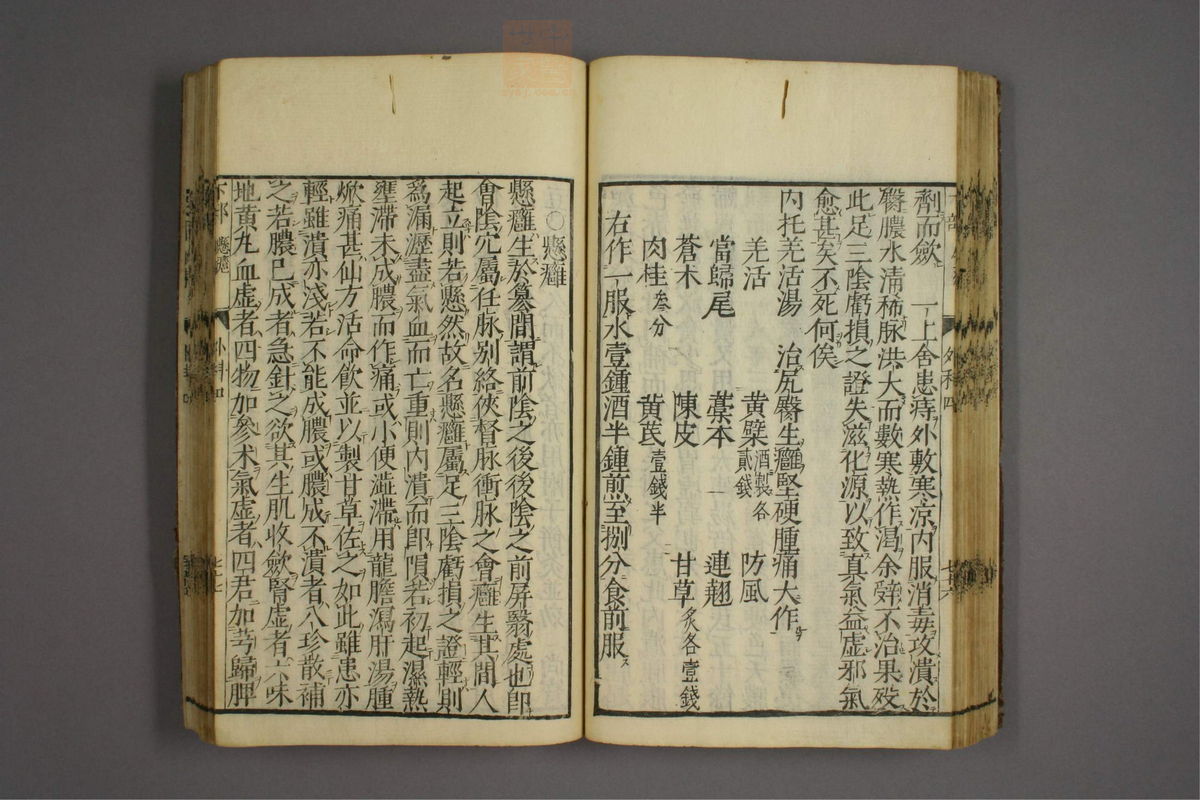 劑而斂　一上舍患痔外敷寒凉内服消毒攻潰於
臀膿水清稀脉洪大而數寒熱作渴余辤不治果殁
此足三陰虧損之證失滋化源以致真氣益虚邪氣
愈甚矣不死何俟
内托羌活湯　治尻臀生癰堅硬腫痛大作
羌活　黄蘗酒製各貳錢　防風
當歸尾　藁本　連翹
蒼木　陳皮　甘草炙各壹錢
肉桂叁分　黄芪壹錢半
右作一服水壹鍾酒半鍾煎至捌分食前服
○懸癰
懸癰生於篡間謂前陰之後後陰之前屏翳處也即
會陰穴屬任脉别絡俠督脉衝脉之會癰生其間人
起立則若懸然故名懸癰屬足三陰虧損之證輕則
為漏瀝盡氣血而亡重則内潰而即隕若初起濕熱
壅滯未成膿而作痛或小便澁滯用龍膽瀉肝湯腫
焮痛甚仙方活命飲並以製甘草佐之如此雖患亦
輕雖潰亦淺若不能成膿或膿成不潰者八珍散補
之若膿已成者急針之欲其生肌收斂腎虚者六味
地黄丸血虚者四物加參术氣虚者四君加芎歸脾
下部　懸癰　外科四　七七